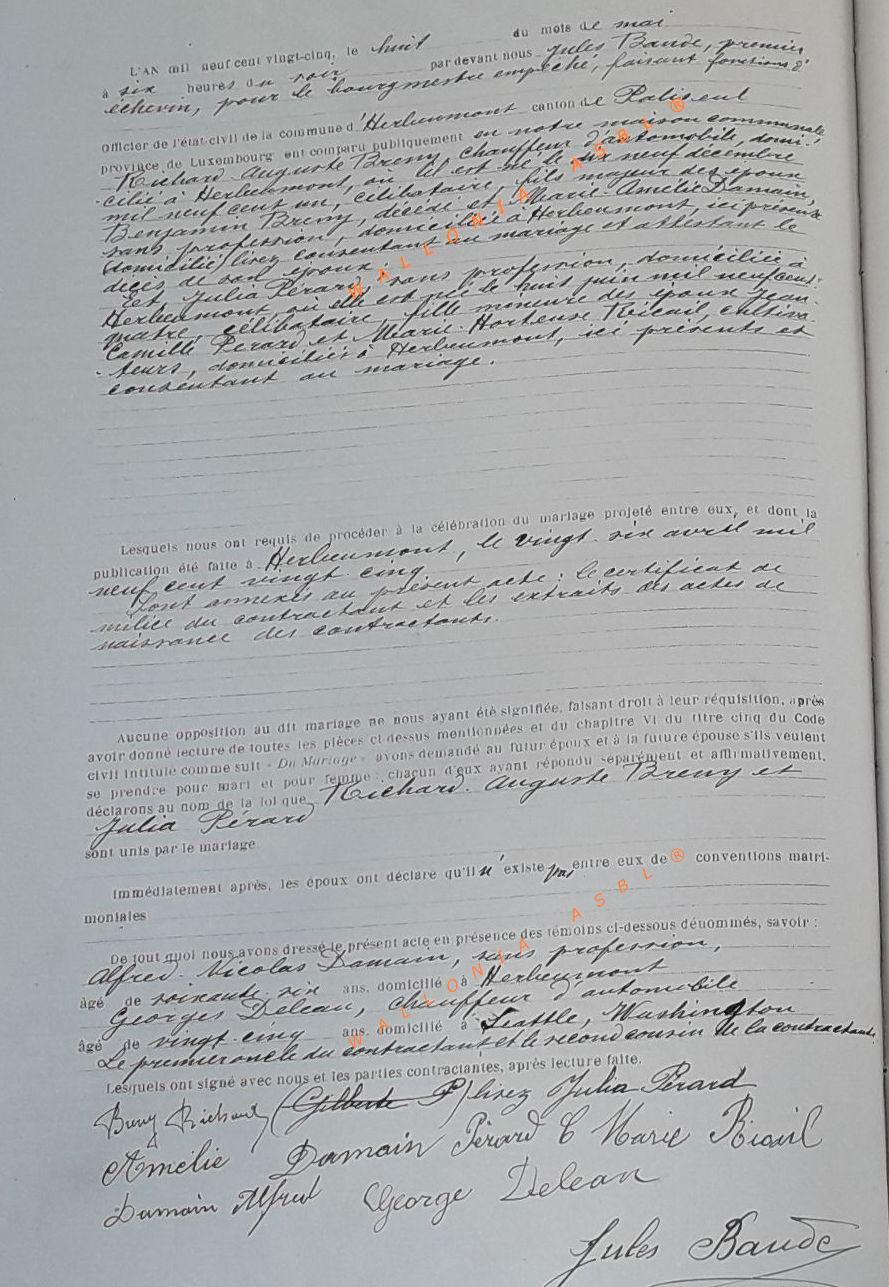 L'AN mil neuf cent vingt-cinq, le huit du mois de mai
à six heures du soir par devant nous Jules Baude, premier
échevin, pour le bourgmestre empêché, faisant fonctions d'
Officier de l'état-civil de la commune d'Herbeumont canton de Paliseul
province de Luxembourg ont comparu publiquement en notre maison communale
Richard-Auguste Breny, chauffeur d'automobile, domi-
cilié à Herbeumont, où il est né le dix neuf décembre
mil neuf cent un, célibataire, fils majeur des époux
Benjamin Breny, décédé et Marie-Amélie Damain,
sans profession, domiciliée à Herbeumont, ici présente
(domicilié) lisez consentant au mariage et attestant le
décès de son époux;
Et, Julia Pérard, sans profession, domiciliée à
Herbeumont, où elle est née le huit juin mil neuf cent
quatre, célibataire, fille mineure des époux Jean-
Camille Pérard et Marie-Hortense Ricail, cultiva-
teurs, domiciliés à Herbeumont, ici présents et
consentant au mariage.
Lesquels nous ont requis de procéder à la célébration du mariage projeté entre eux, et dont la
publication été faite à Herbeumont, le vingt-six avril mil
neuf cent vingt-cinq
Sont annexés au présent acte: le certificat de
milice du contractant et les extraits des actes de
naissance des contractants.
Aucune opposition au dit mariage ne nous ayant été signifiée, faisant droit à leur réquisition, après
avoir donné lecture de toutes les pièces ci-dessus mentionnées et du chapitre VI du titre cinq du Code
civil intitulé comme suit « Du Mariage » avons demandé au futur époux et à la future épouse s'ils veulent
se prendre pour mari et pour femme: chacun d'eux ayant répondu séparément et affirmativement,
déclarons au nom de la loi que Richard-Auguste Breny et
Julia Pérard
sont unis par le mariage
Immédiatement après, les époux ont déclaré qu'il n'existe pas entre eux de conventions matri-
moniales
De tout quoi nous avons dressé le présent acte en présence des témoins ci-dessous dénommés, savoir :
Alfred-Nicolas Damain, sans profession,
âgé de soixante-six ans, domicilié à Herbeumont
Georges Delean, chauffeur d'automobile
âgé de vingt-cinq ans, domicilié à Seattle, Washington
Le premier oncle du contractant et le second cousin de la contractante
Lesquels ont signé avec nous et les parties contractantes, après lecture faite.
Breny Richard (Gilberte P) lisez Julia Pérard
Amélie Damain Pérard C Marie Ricail
Damain Alfred George Delean
Jules Baude
WALLONIA ASBL®
WALLONIA ASBL®